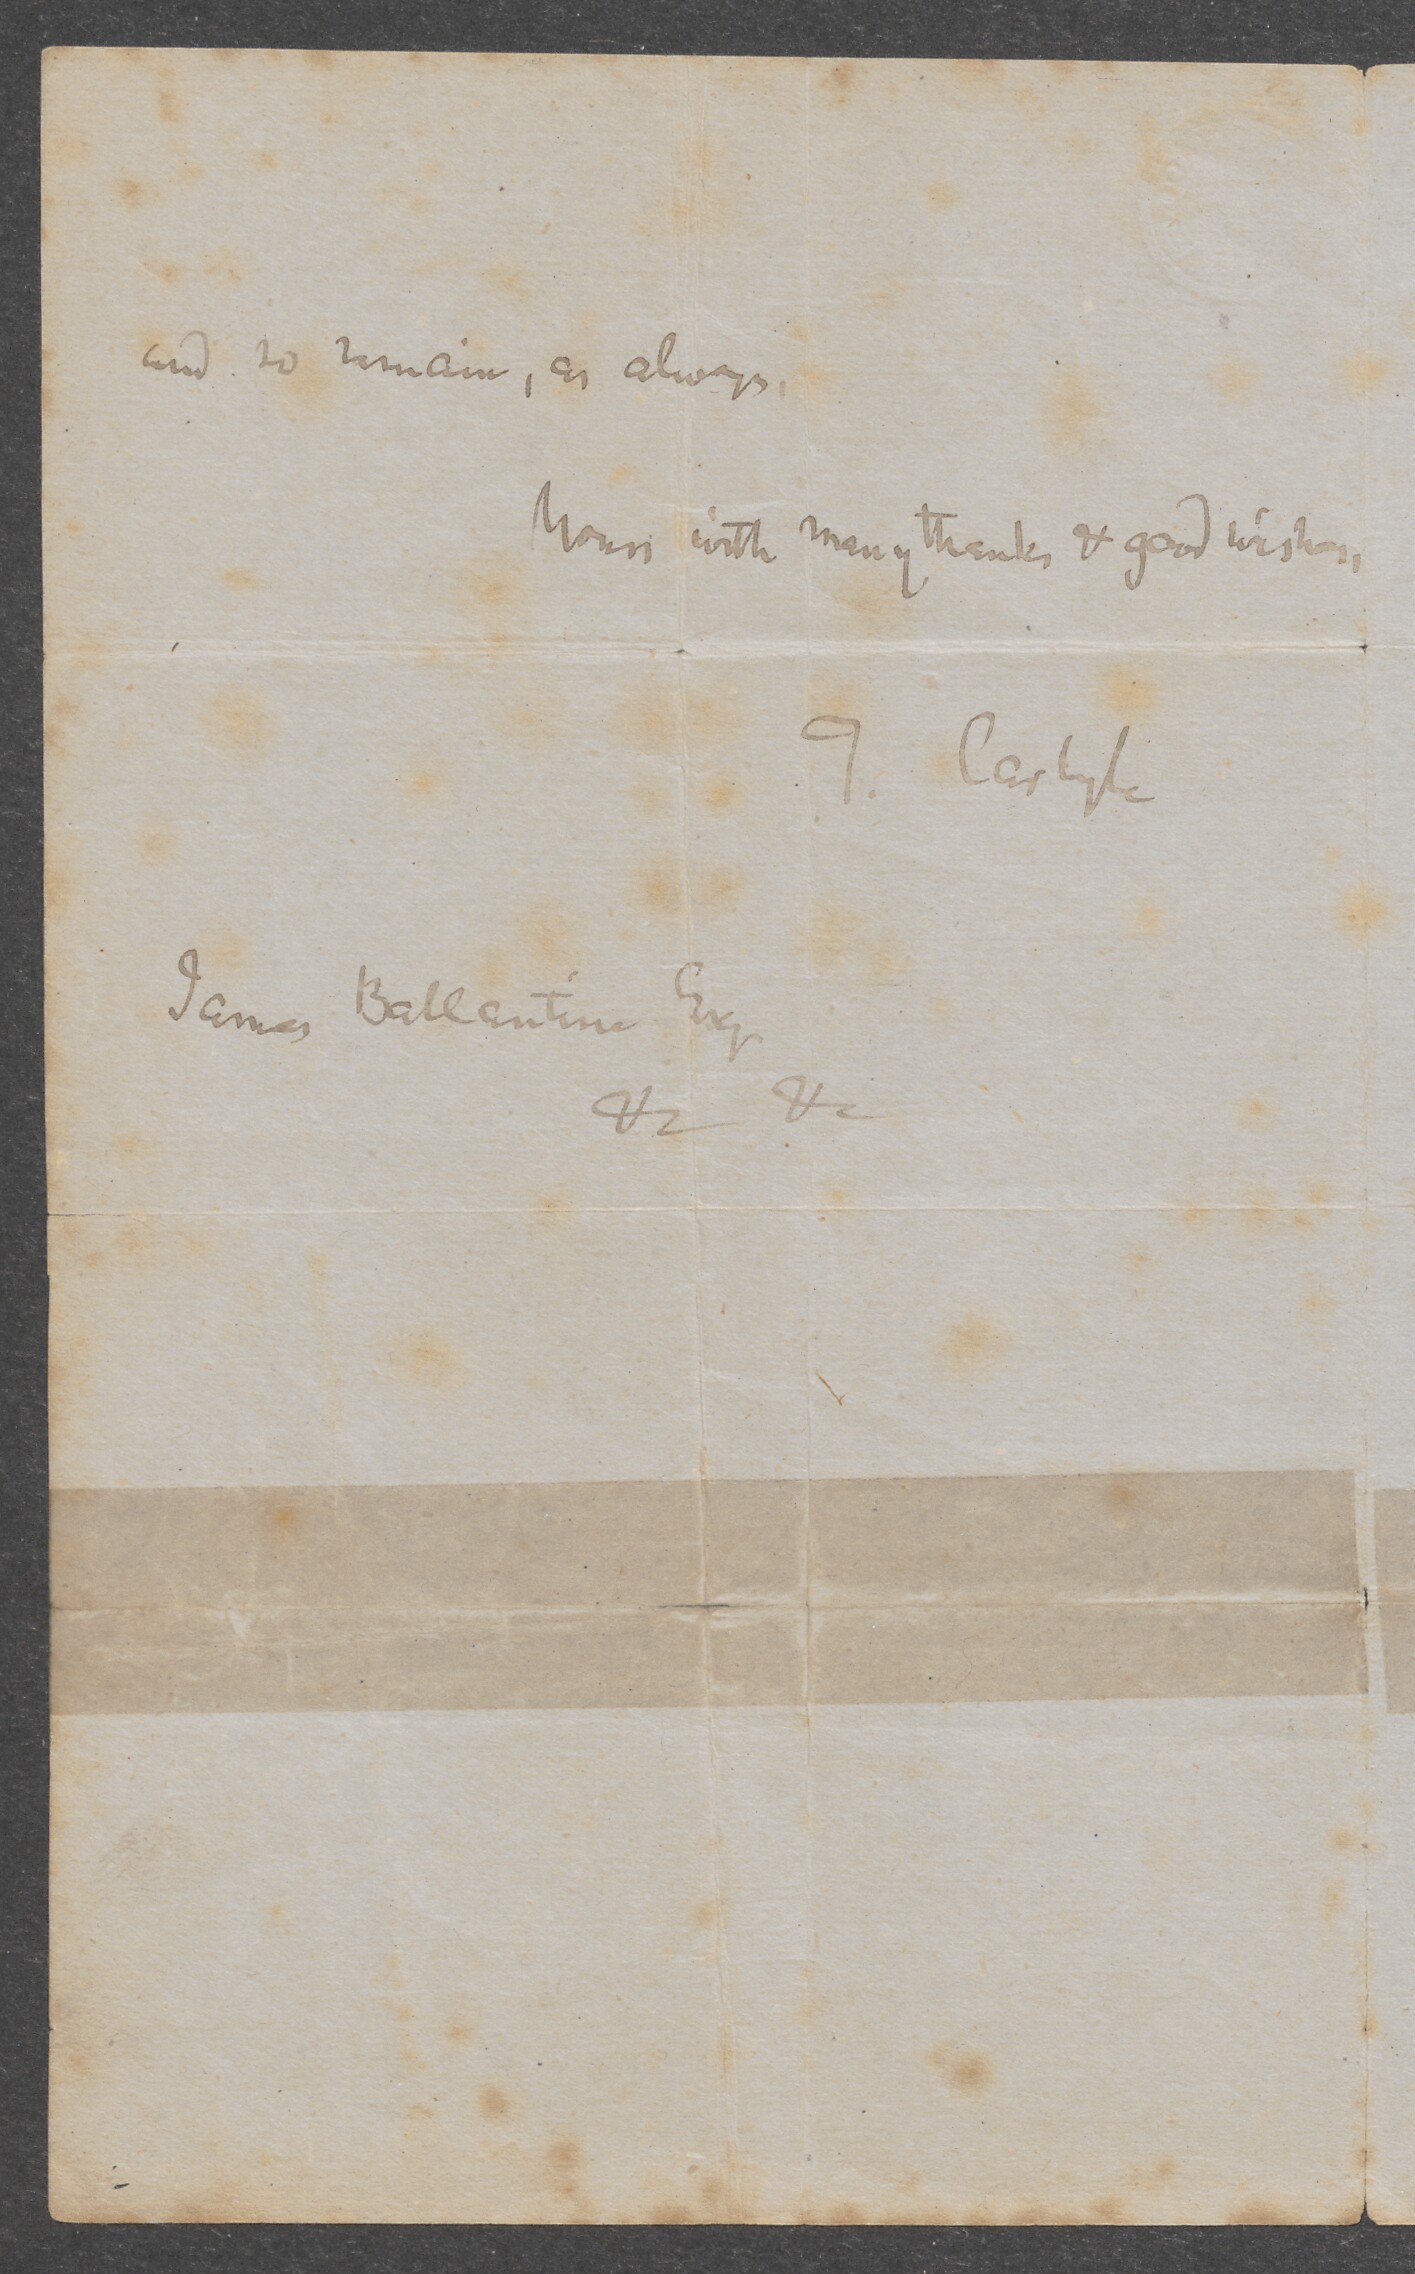 and so remain, as always,
Yours with many thanks & good wishes,
T. Carlyle
James Ballantine Esq
&c &c